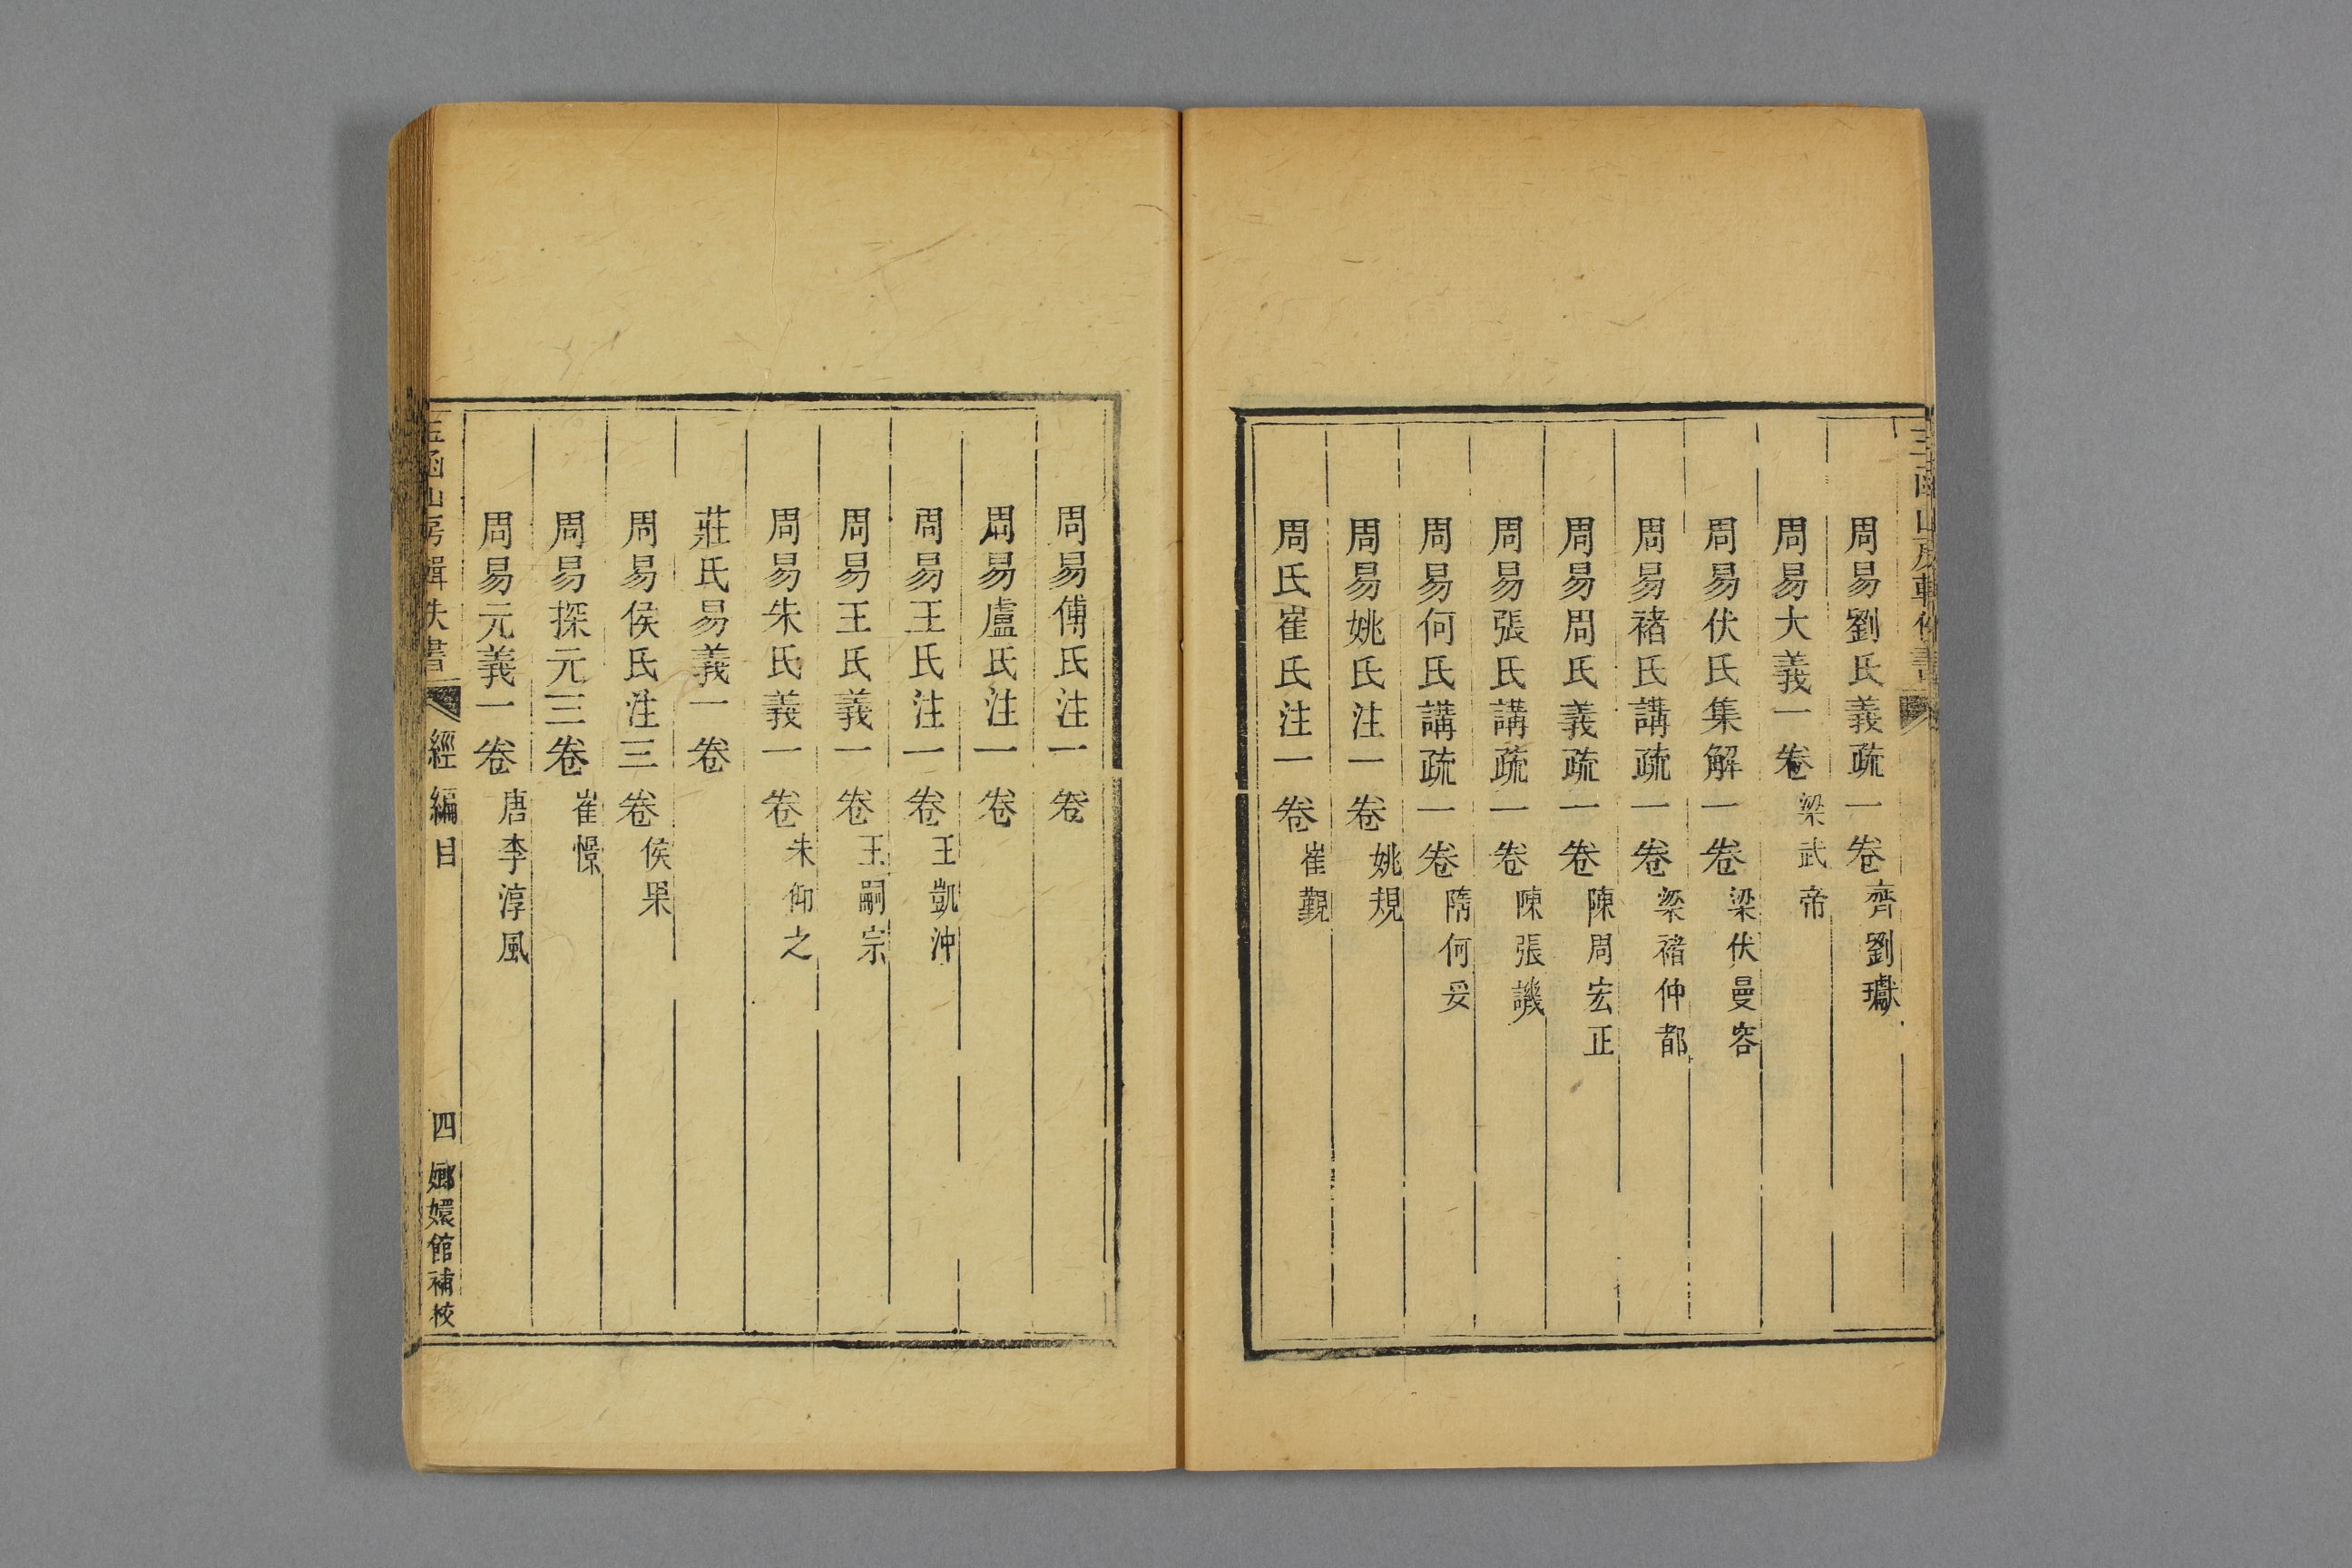 周易劉氏義疏一卷 齊劉瓛
周易大義一卷 梁武帝
周易伏氏集解一卷 梁伏曼容
周易褚氏講疏一卷 梁褚仲都
周易周氏義疏一卷 陳周宏正
周易張氏講疏一卷 陳張譏
周易何氏講疏一卷 隋何妥
周易姚氏注一卷 姚規
周氏崔氏注一卷 崔覲
周易傅氏注一卷
周易盧氏注一卷
周易王氏注一卷 王凱沖
周易王氏義一卷 王嗣宗
周易朱氏義一卷 朱仰之
莊氏易義一卷
周易侯氏注三卷 侯果
周易探元三卷 崔憬
周易元義一卷 唐李淳風
玉函山房輯佚書 經編目 四 嫏嬛館補校